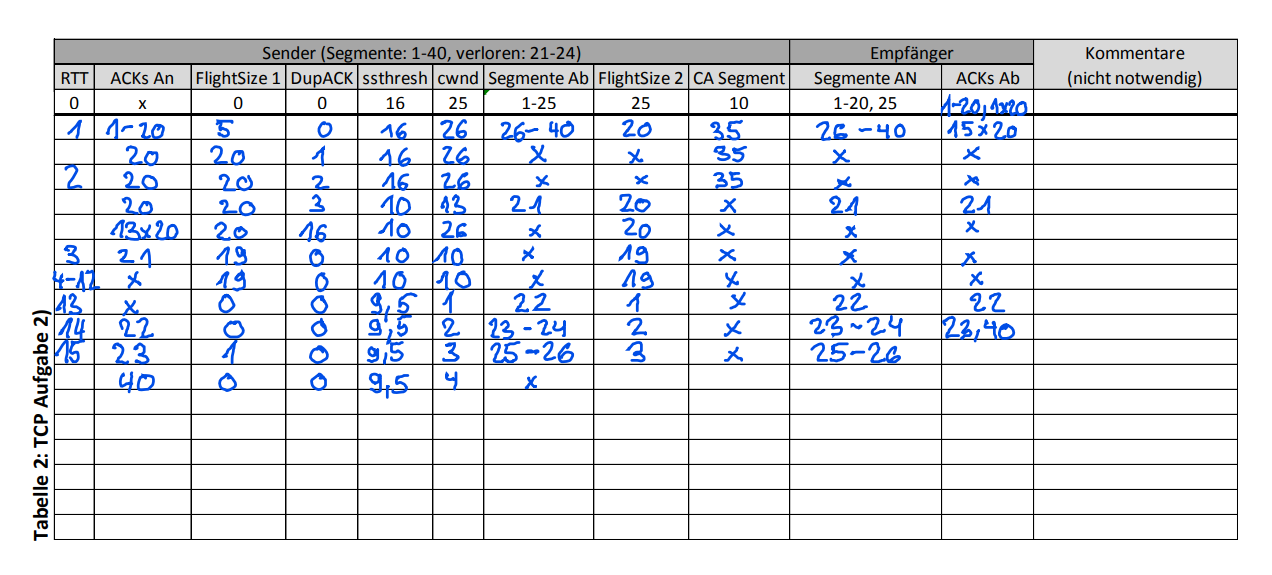 Sender (Segmente: 1-40, verloren: 21-24) Empfänger Kommentare
RTT ACKs An FlightSize 1 DupACK ssthresh cwnd Segmente Ab FlightSize 2 CA Segment Segmente AN ACKs Ab (nicht notwendig)
0 x 0 0 16 25 1-25 25 10 1-20, 25 1-20, 1x20
1 1-20 5 0 16 26 26-40 20 35 26-40 15x20
20 20 1 16 26 x x 35 x x
2 20 20 2 16 26 x x 35 x x
20 20 3 10 13 21 20 x 21 21
13x20 20 16 10 26 x 20 x x x
3 21 19 0 10 10 x 19 x x x
4-12 x 19 0 10 10 x 19 x x x
13 x 0 0 9,5 1 22 1 x 22 22
14 22 0 0 9,5 2 23-24 2 x 23-24 23,40
15 23 1 0 9,5 3 25-26 3 x 25-26
40 0 0 9,5 4 x
Tabelle 2: TCP Aufgabe 2)